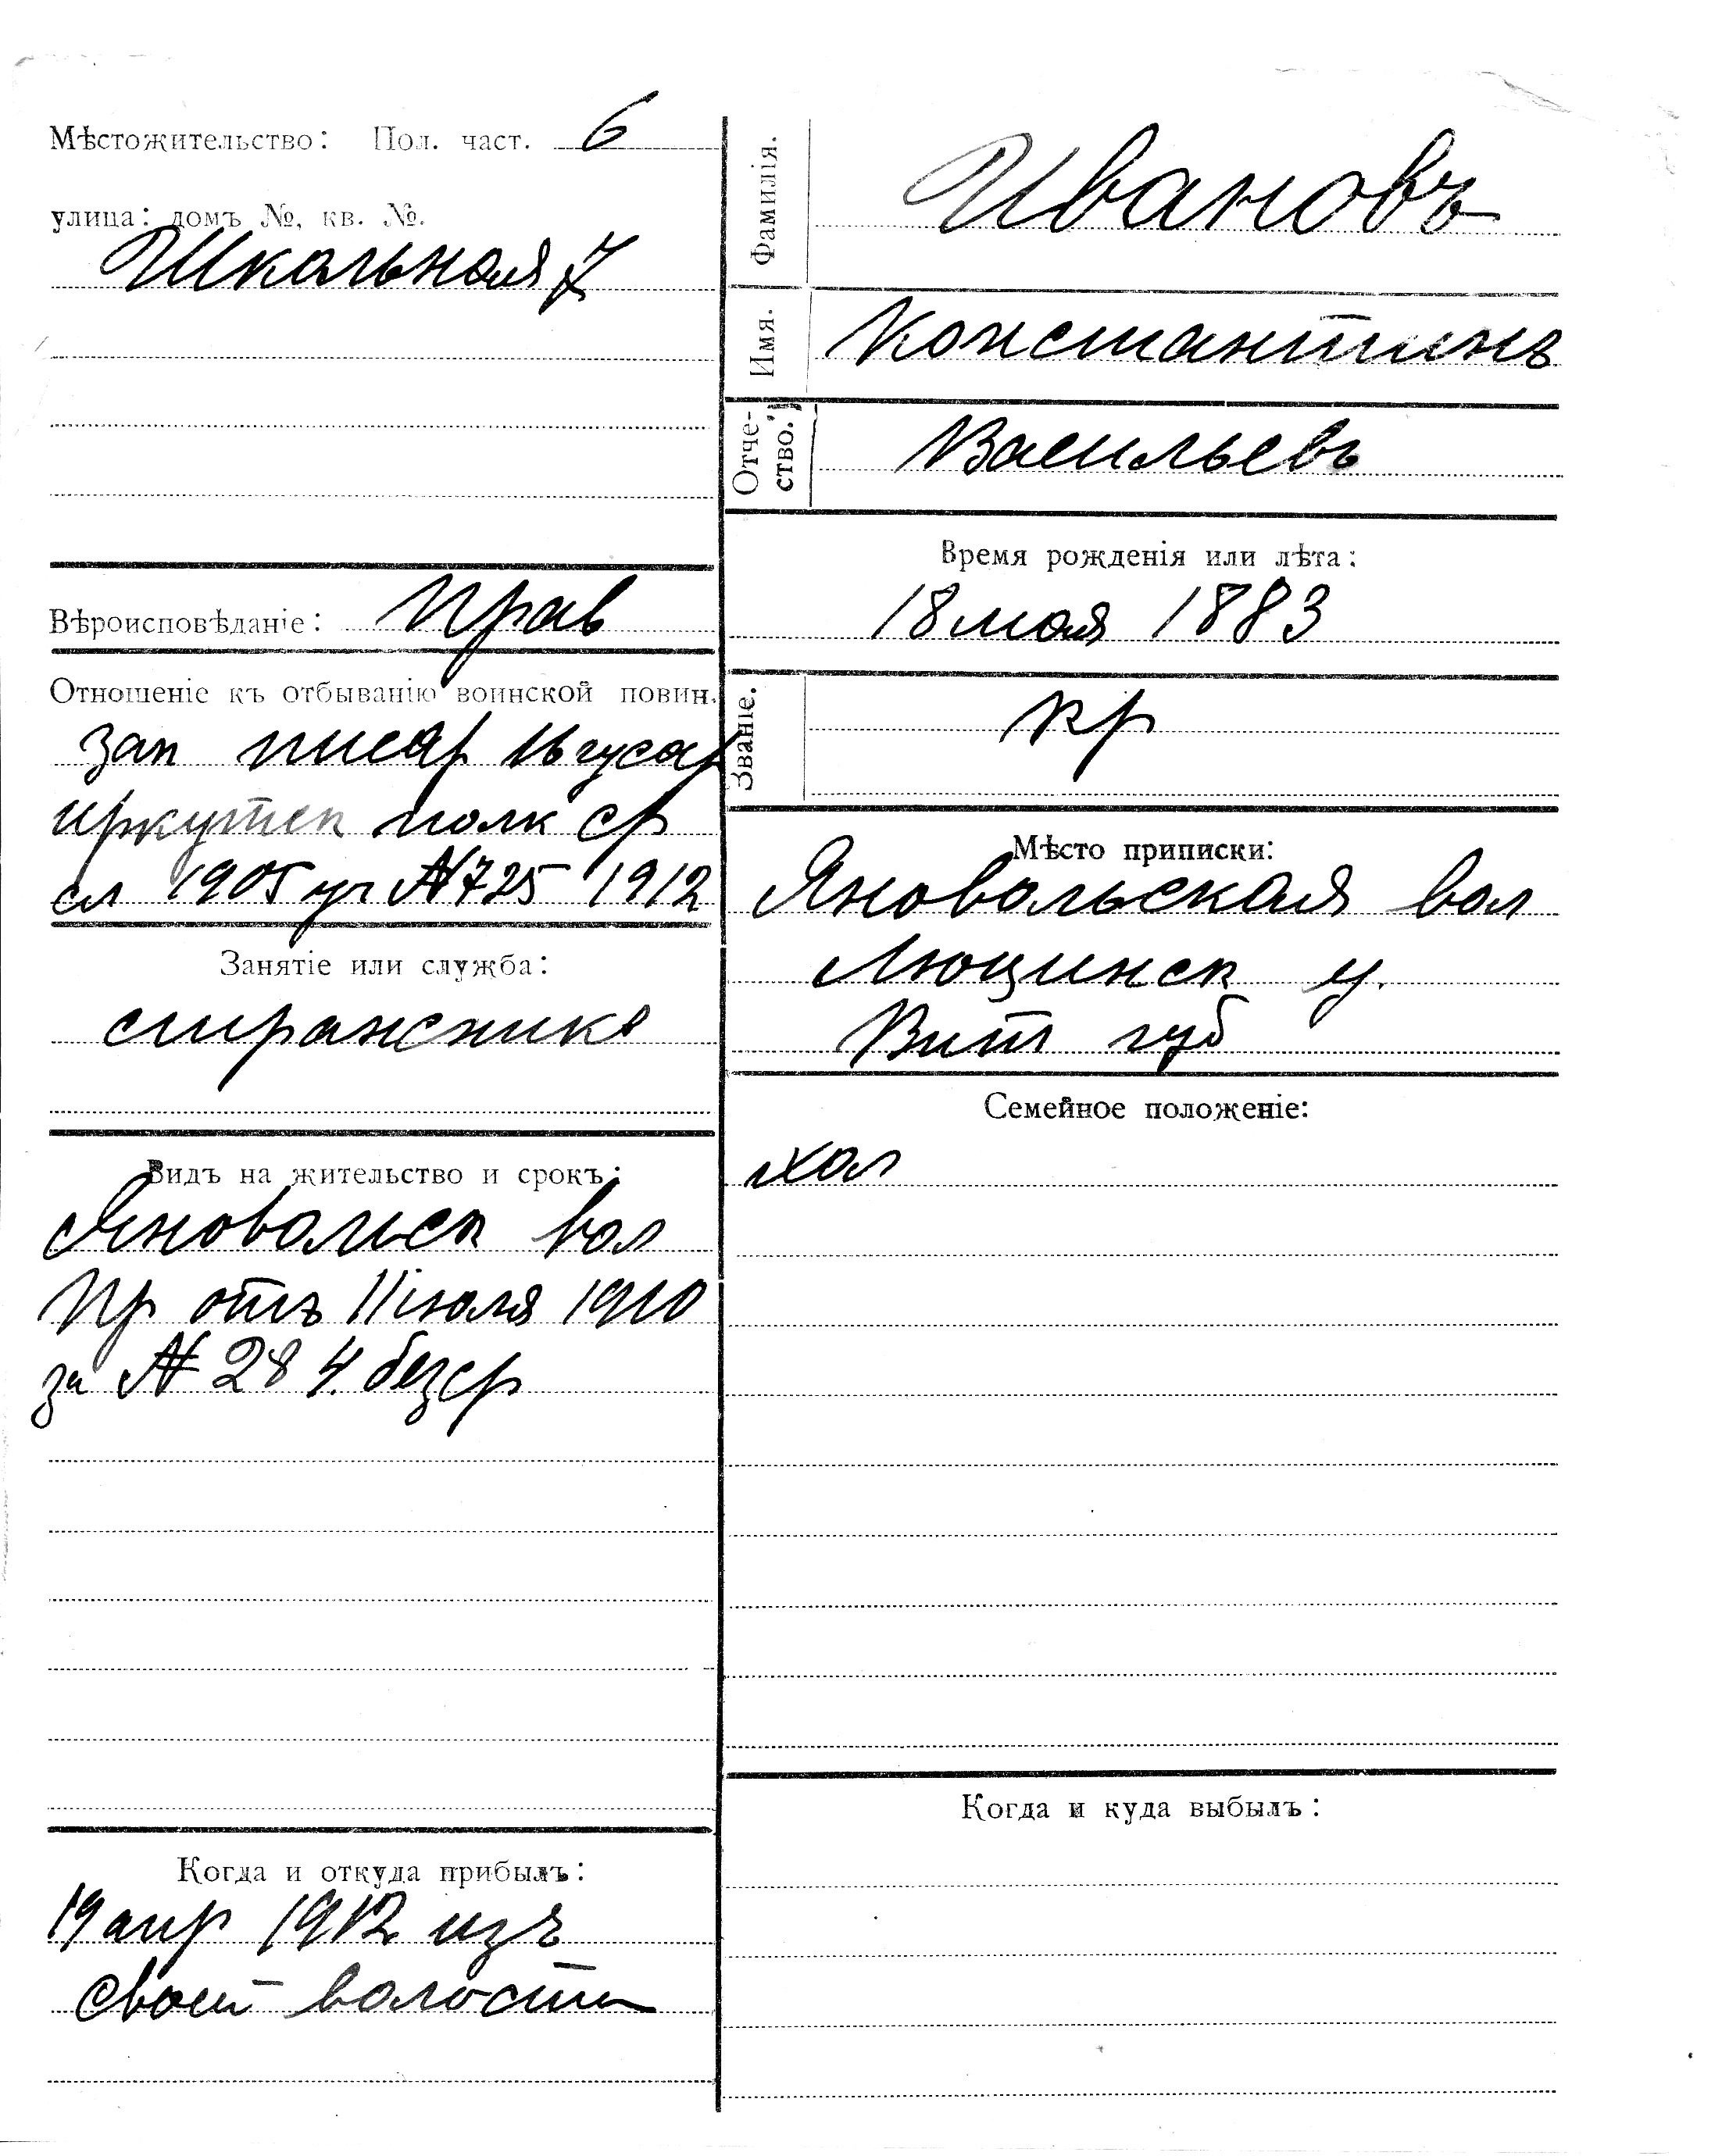 Мѣстожительство: Пол. част. 6
улица: домъ №, кв. №.
Школьная 7
Вѣроисповѣданіе: прав
Отношеніе къ отбыванію воинской повин.
зап писар 16 гусар
иркутск полк ср
сл 1905 уч № 725 1912
Занятіе или служба:
стражникъ
Видъ на жительство и срокъ:
Яновольск вол
пр отъ 11 іюля 1910
за № 284. безср
Когда и откуда прибылъ:
19 апр 1912 изъ
своей волости
Фамилія.
Ивановъ
Имя.
Константинъ
Отче-
ство.
Васильевъ
Время рожденія или лѣта:
18 мая 1883
Званіе.
кр
Мѣсто приписки:
Яновольская вол
Люцинск у.
Вит губ
Семейное положеніе:
хол
Когда и куда выбылъ: